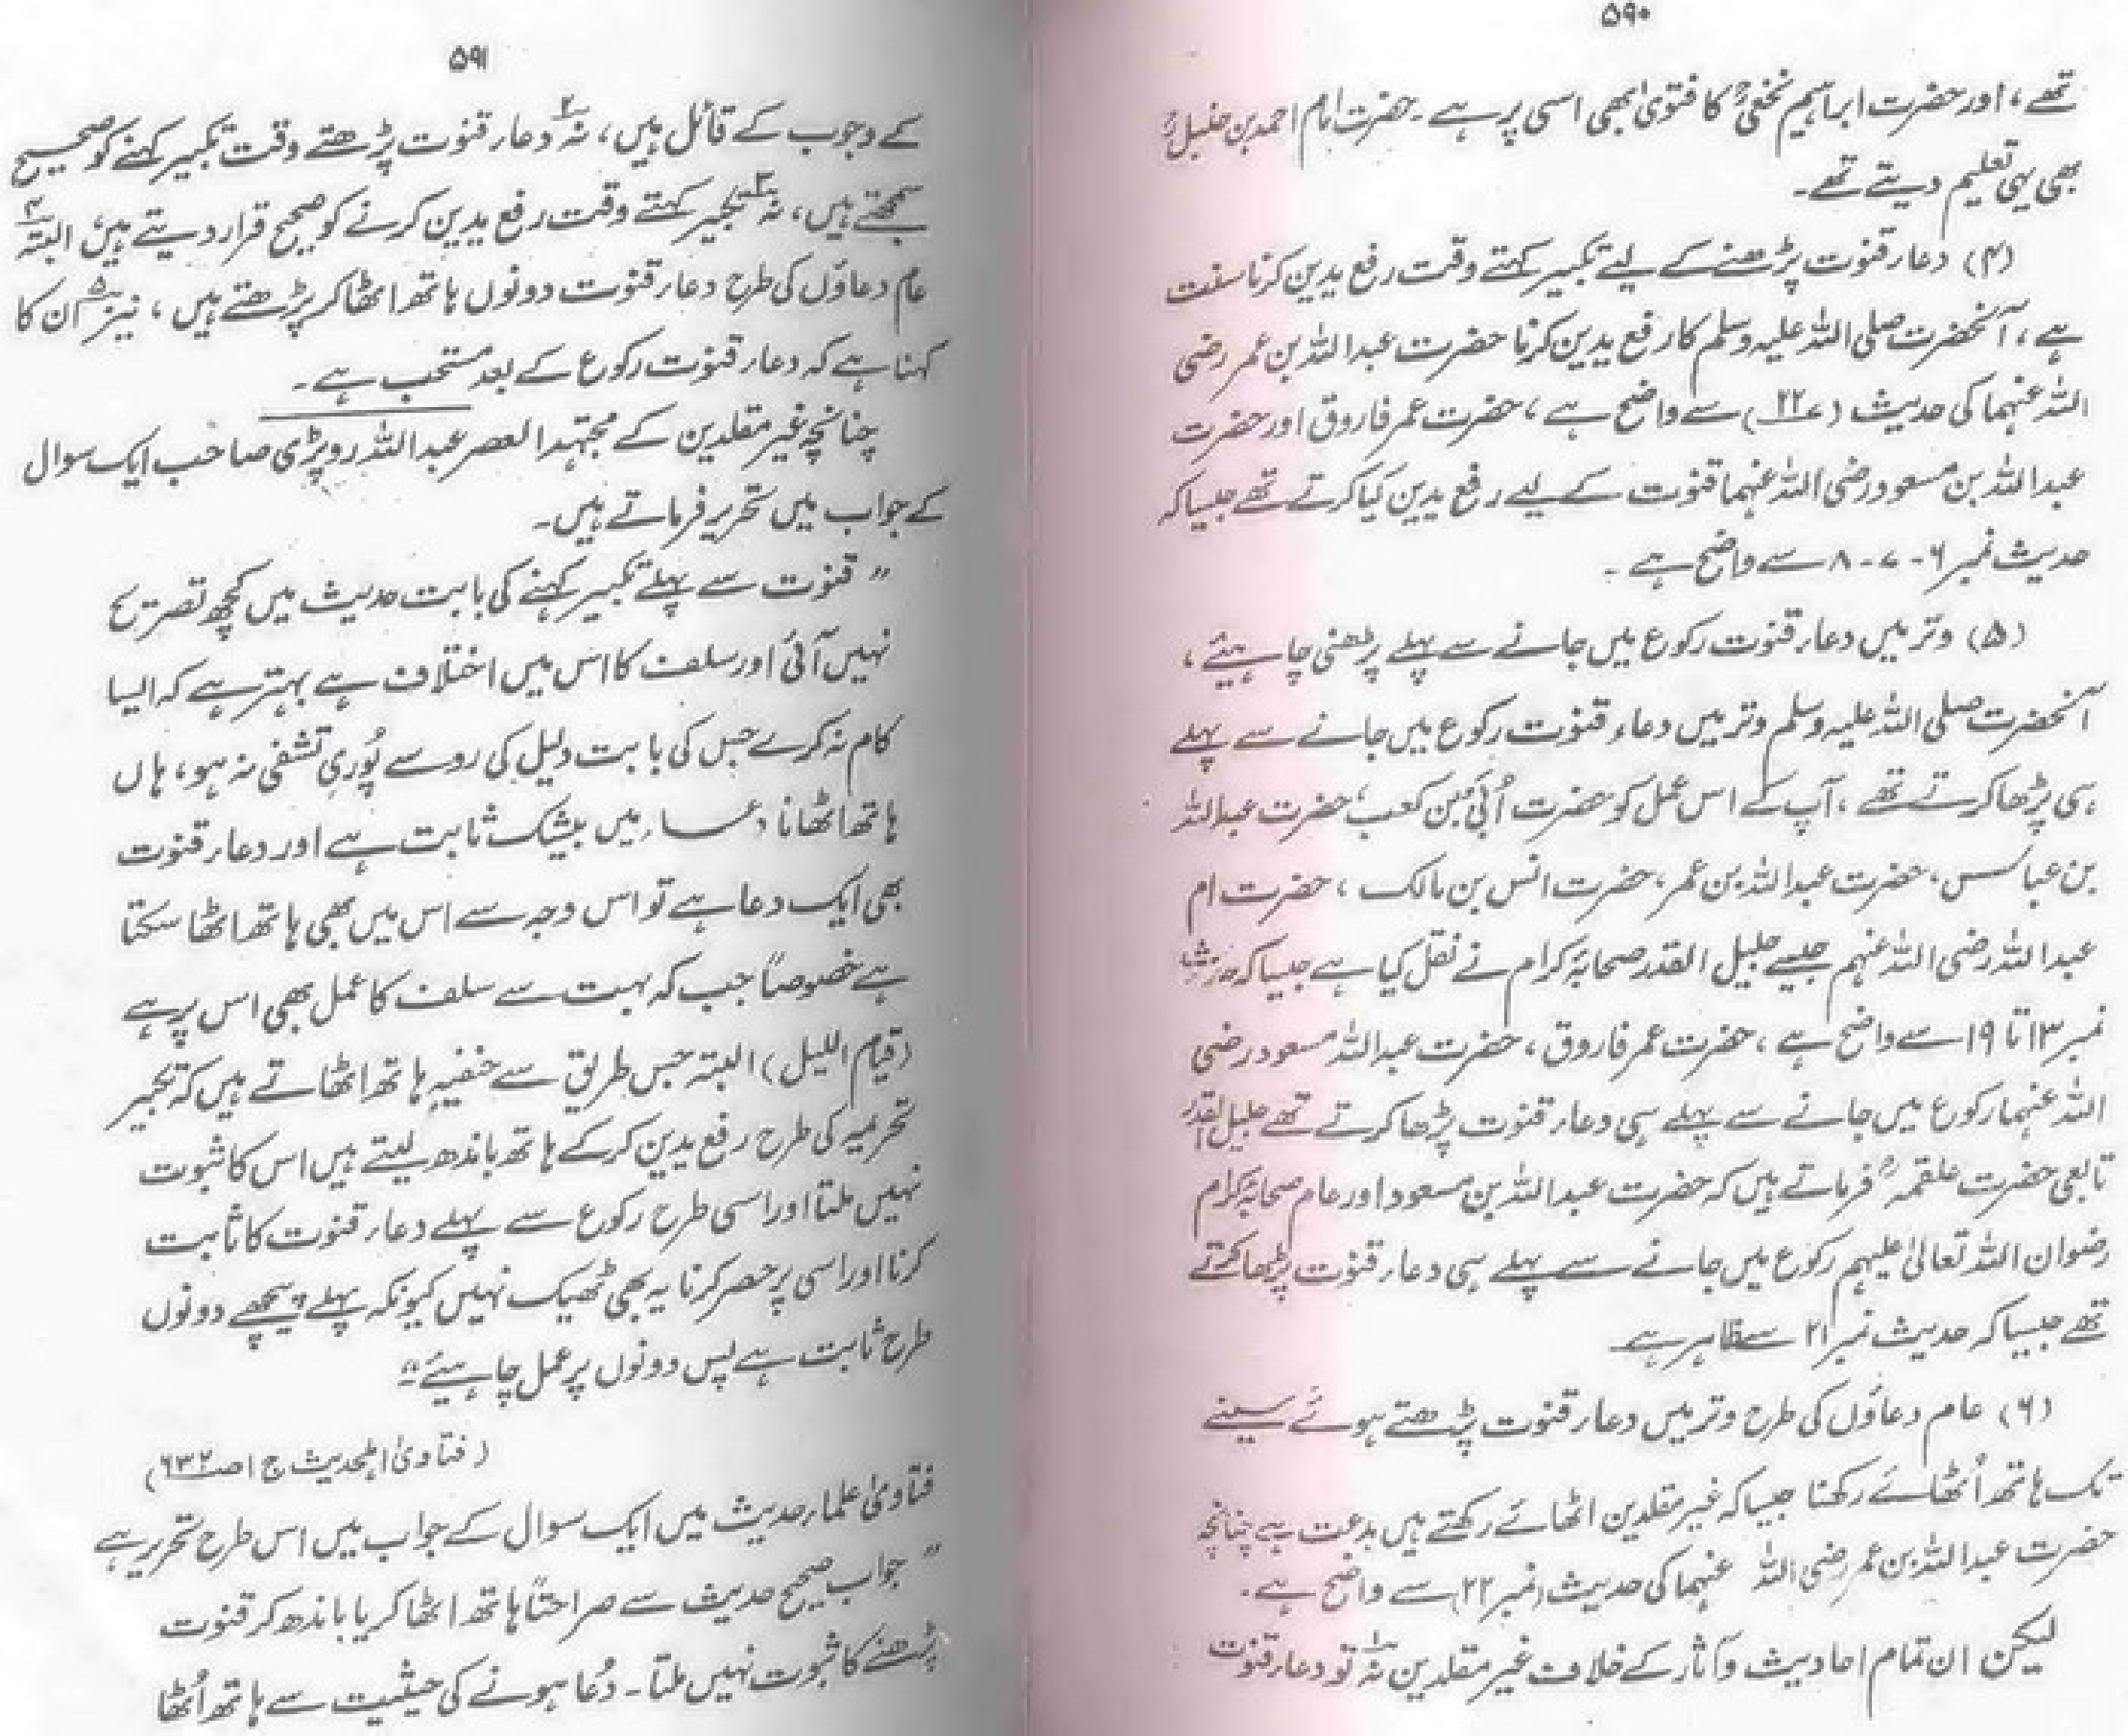 ۵۹۰
تھے ، اور حضرت ابراہیم نخعیؒ کا فتویٰ بھی اسی پر ہے ۔ حضرت امام احمد بن حنبلؒ
بھی یہی تعلیم دیتے تھے ۔
(۴) دعاء قنوت پڑھنے کے لیے تکبیر کہتے وقت رفع یدین کرنا سنت
ہے ، آنحضرت صلی اللہ علیہ وسلم کا رفع یدین کرنا حضرت عبداللہ بن عمر رضی
اللہ عنہما کی حدیث (۲۲؁) سے واضح ہے ، حضرت عمر فاروق اور حضرت
عبداللہ بن مسعود رضی اللہ عنہما قنوت کے لیے رفع یدین کیا کرتے تھے جیسا کہ
حدیث نمبر ۶ - ۷ - ۸ سے واضح ہے ۔
(۵) وتر میں دعاء قنوت رکوع میں جانے سے پہلے پڑھنی چاہیئے ،
آنحضرت صلی اللہ علیہ وسلم وتر میں دعاء قنوت رکوع میں جانے سے پہلے
ہی پڑھا کرتے تھے ، آپ کے اس عمل کو حضرت اُبیّ بن کعب ، حضرت عبداللہ
بن عباس ، حضرت عبداللہ بن عمر ، حضرت انس بن مالک ، حضرت ام
عبداللہ رضی اللہ عنہم جیسے جلیل القدر صحابۂ کرام نے نقل کیا ہے جیسا کہ
نمبر ۱۳ تا ۱۹ سے واضح ہے ، حضرت عمر فاروق ، حضرت عبداللہ مسعود رضی
اللہ عنہما رکوع میں جانے سے پہلے ہی دعاء قنوت پڑھا کرتے تھے جلیل القدر
تابعی حضرت علقمہؒ فرماتے ہیں کہ حضرت عبداللہ بن مسعود اور عام صحابۂ کرام
رضوان اللہ تعالیٰ علیہم رکوع میں جانے سے پہلے ہی دعاء قنوت پڑھا کرتے
تھے جیسا کہ حدیث نمبر ۲۱ سے ظاہر ہے
(۶) عام دعاؤں کی طرح وتر میں دعاء قنوت پڑھتے ہوئے سینے
تک ہاتھ اُٹھائے رکھنا جیسا کہ غیر مقلدین اٹھائے رکھتے ہیں بدعت ہے چنانچہ
حضرت عبداللہ بن عمر رضی اللہ عنہما کی حدیث (نمبر ۲۲) سے واضح ہے ۔
لیکن ان تمام احادیث و آثار کے خلاف غیر مقلدین نہ۱ تو دعاء قنوت
۵۹۱
کے وجوب کے قائل ہیں ، نہ۲ دعاء قنوت پڑھتے وقت تکبیر کہنے کو صحیح
سمجھتے ہیں ، نہ۳ تکبیر کہتے وقت رفع یدین کرنے کو صحیح قرار دیتے ہیں ، البتہ۴
عام دعاؤں کی طرح دعاء قنوت دونوں ہاتھ اٹھا کر پڑھتے ہیں ، نیز۵ ان کا
کہنا ہے کہ دعاء قنوت رکوع کے بعد مستحب ہے ۔
چنانچہ غیر مقلدین کے مجتہد العصر عبداللہ روپڑی صاحب ایک سوال
کے جواب میں تحریر فرماتے ہیں ۔
” قنوت سے پہلے تکبیر کہنے کی بابت حدیث میں کچھ تصریح
نہیں آئی اور سلف کا اس میں اختلاف ہے بہتر ہے کہ ایسا
کام نہ کرے جس کی بابت دلیل کی رو سے پُوری تشفی نہ ہو ، ہاں
ہاتھ اٹھانا دعاء میں بیشک ثابت ہے اور دعاء قنوت
بھی ایک دعا ہے تو اس وجہ سے اس میں بھی ہاتھ اٹھا سکتا
ہے خصوصاً جب کہ بہت سے سلف کا عمل بھی اس پر ہے
(قیام اللیل) البتہ جس طریق سے حنفیہ ہاتھ اٹھاتے ہیں کہ تکبیر
تحریمہ کی طرح رفع یدین کر کے ہاتھ باندھ لیتے ہیں اس کا ثبوت
نہیں ملتا اور اسی طرح رکوع سے پہلے دعاء قنوت کا ثابت
کرنا اور اسی پر حصر کرنا یہ بھی ٹھیک نہیں کیونکہ پہلے پیچھے دونوں
طرح ثابت ہے پس دونوں پر عمل چاہیئے “
( فتاویٰ اہلحدیث ج ۱ ص۶۳۲)
فتاویٰ علماء حدیث میں ایک سوال کے جواب میں اس طرح تحریر ہے
” جواب صحیح حدیث سے صراحتاً ہاتھ اٹھا کر یا باندھ کر قنوت
پڑھنے کا ثبوت نہیں ملتا ۔ دُعا ہونے کی حیثیت سے ہاتھ اُٹھا